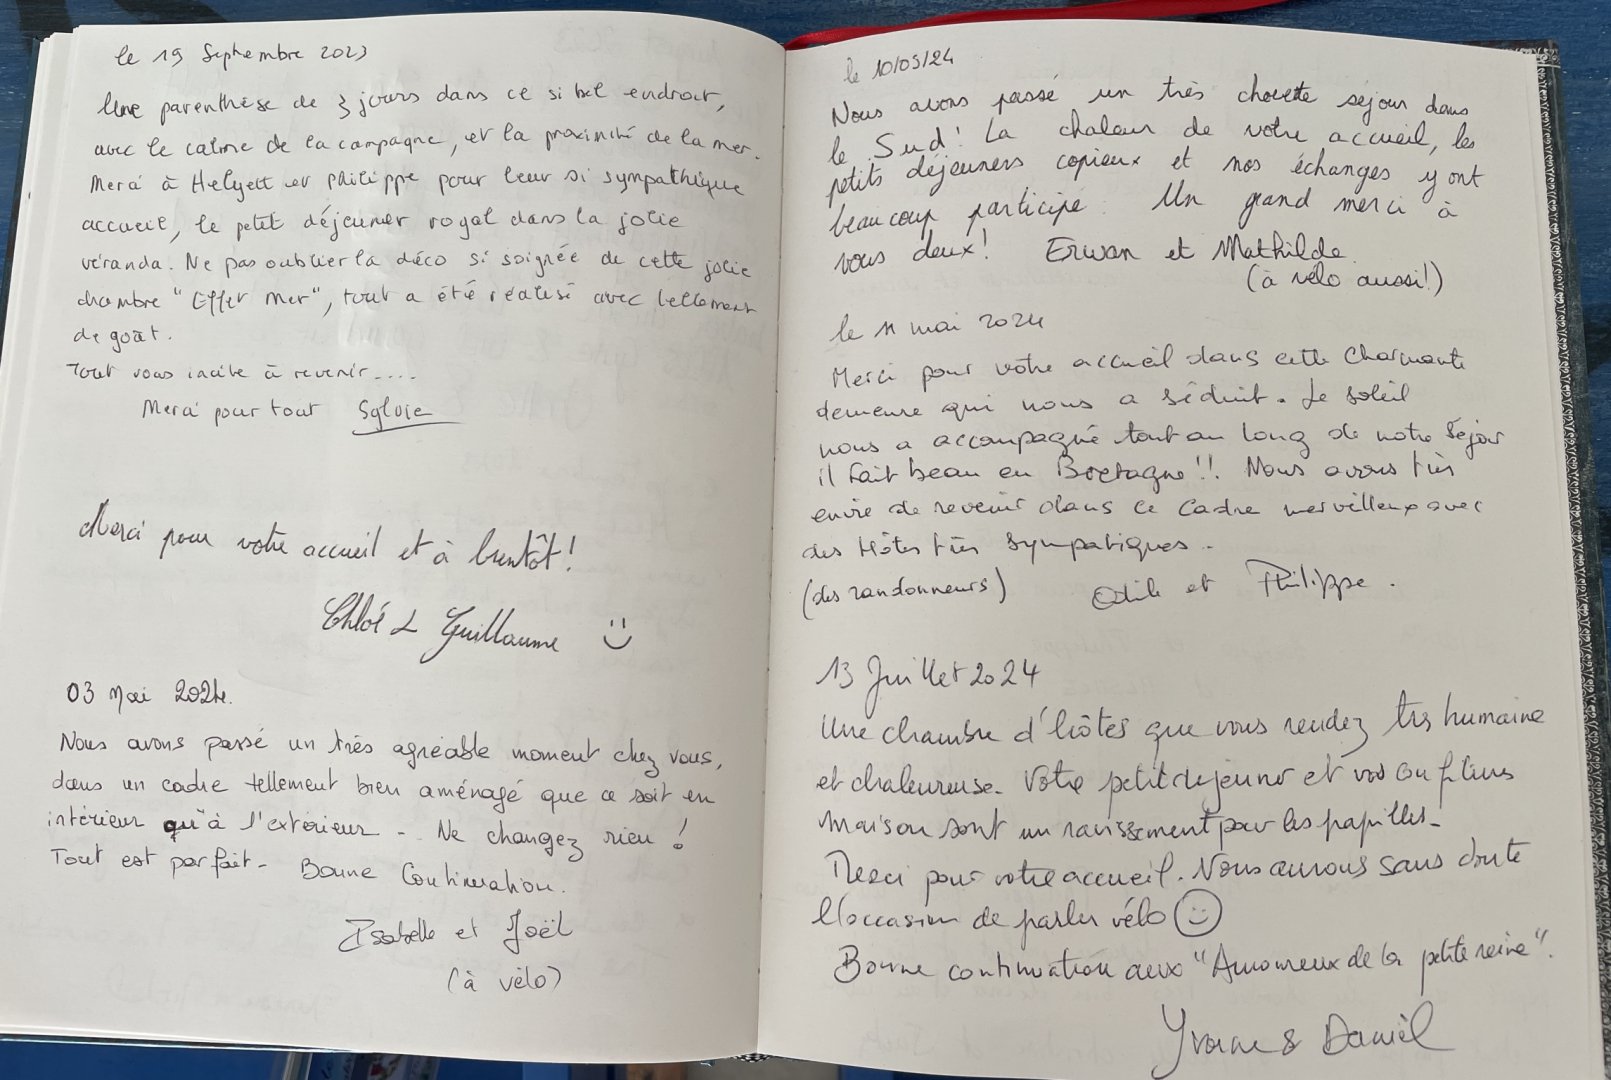 le 19 Septembre 2023
Une parenthèse de 3 jours dans ce si bel endroit,
avec le calme de la campagne, et la proximité de la mer.
Merci à Helyett et Philippe pour leur si sympathique
accueil, le petit déjeuner royal dans la jolie
véranda. Ne pas oublier la déco si soignée de cette jolie
chambre "Effet Mer", tout a été réalisé avec tellement
de goût.
Tout vous incite à revenir....
Merci pour tout Sylvie
Merci pour votre accueil et à bientôt!
Chloé & Guillaume
03 Mai 2024.
Nous avons passé un très agréable moment chez vous,
dans un cadre tellement bien aménagé que ce soit en
intérieur qu'à l'extérieur - . Ne changez rien !
Tout est parfait - Bonne Continuation.
Isabelle et Joël
(à vélo)
le 10/05/24
Nous avons passé un très chouette séjour dans
le Sud ! La chaleur de votre accueil, les
petits déjeuners copieux et nos échanges y ont
beaucoup participé. Un grand merci à
vous deux! Erwan et Mathilde
(à vélo aussi!)
le 11 mai 2024
Merci pour votre accueil dans cette charmante
demeure qui nous a séduit. Le soleil
nous a accompagné tout au long de notre séjour
il fait beau en Bretagne!! Nous avons très
envie de revenir dans ce cadre merveilleux avec
des Hôtes très sympatiques.
(des randonneurs) Odile et Philippe.
13 Juillet 2024
Une chambre d'hôtes que vous rendez très humaine
et chaleureuse. Votre petit dejeuner et vos confitures
maison sont un ravissement pour les papilles -
Merci pour votre accueil. Nous aurons sans doute
l'occasion de parler vélo
Bonne continuation aux "Amoureux de la petite reine".
Yvonne & Daniel